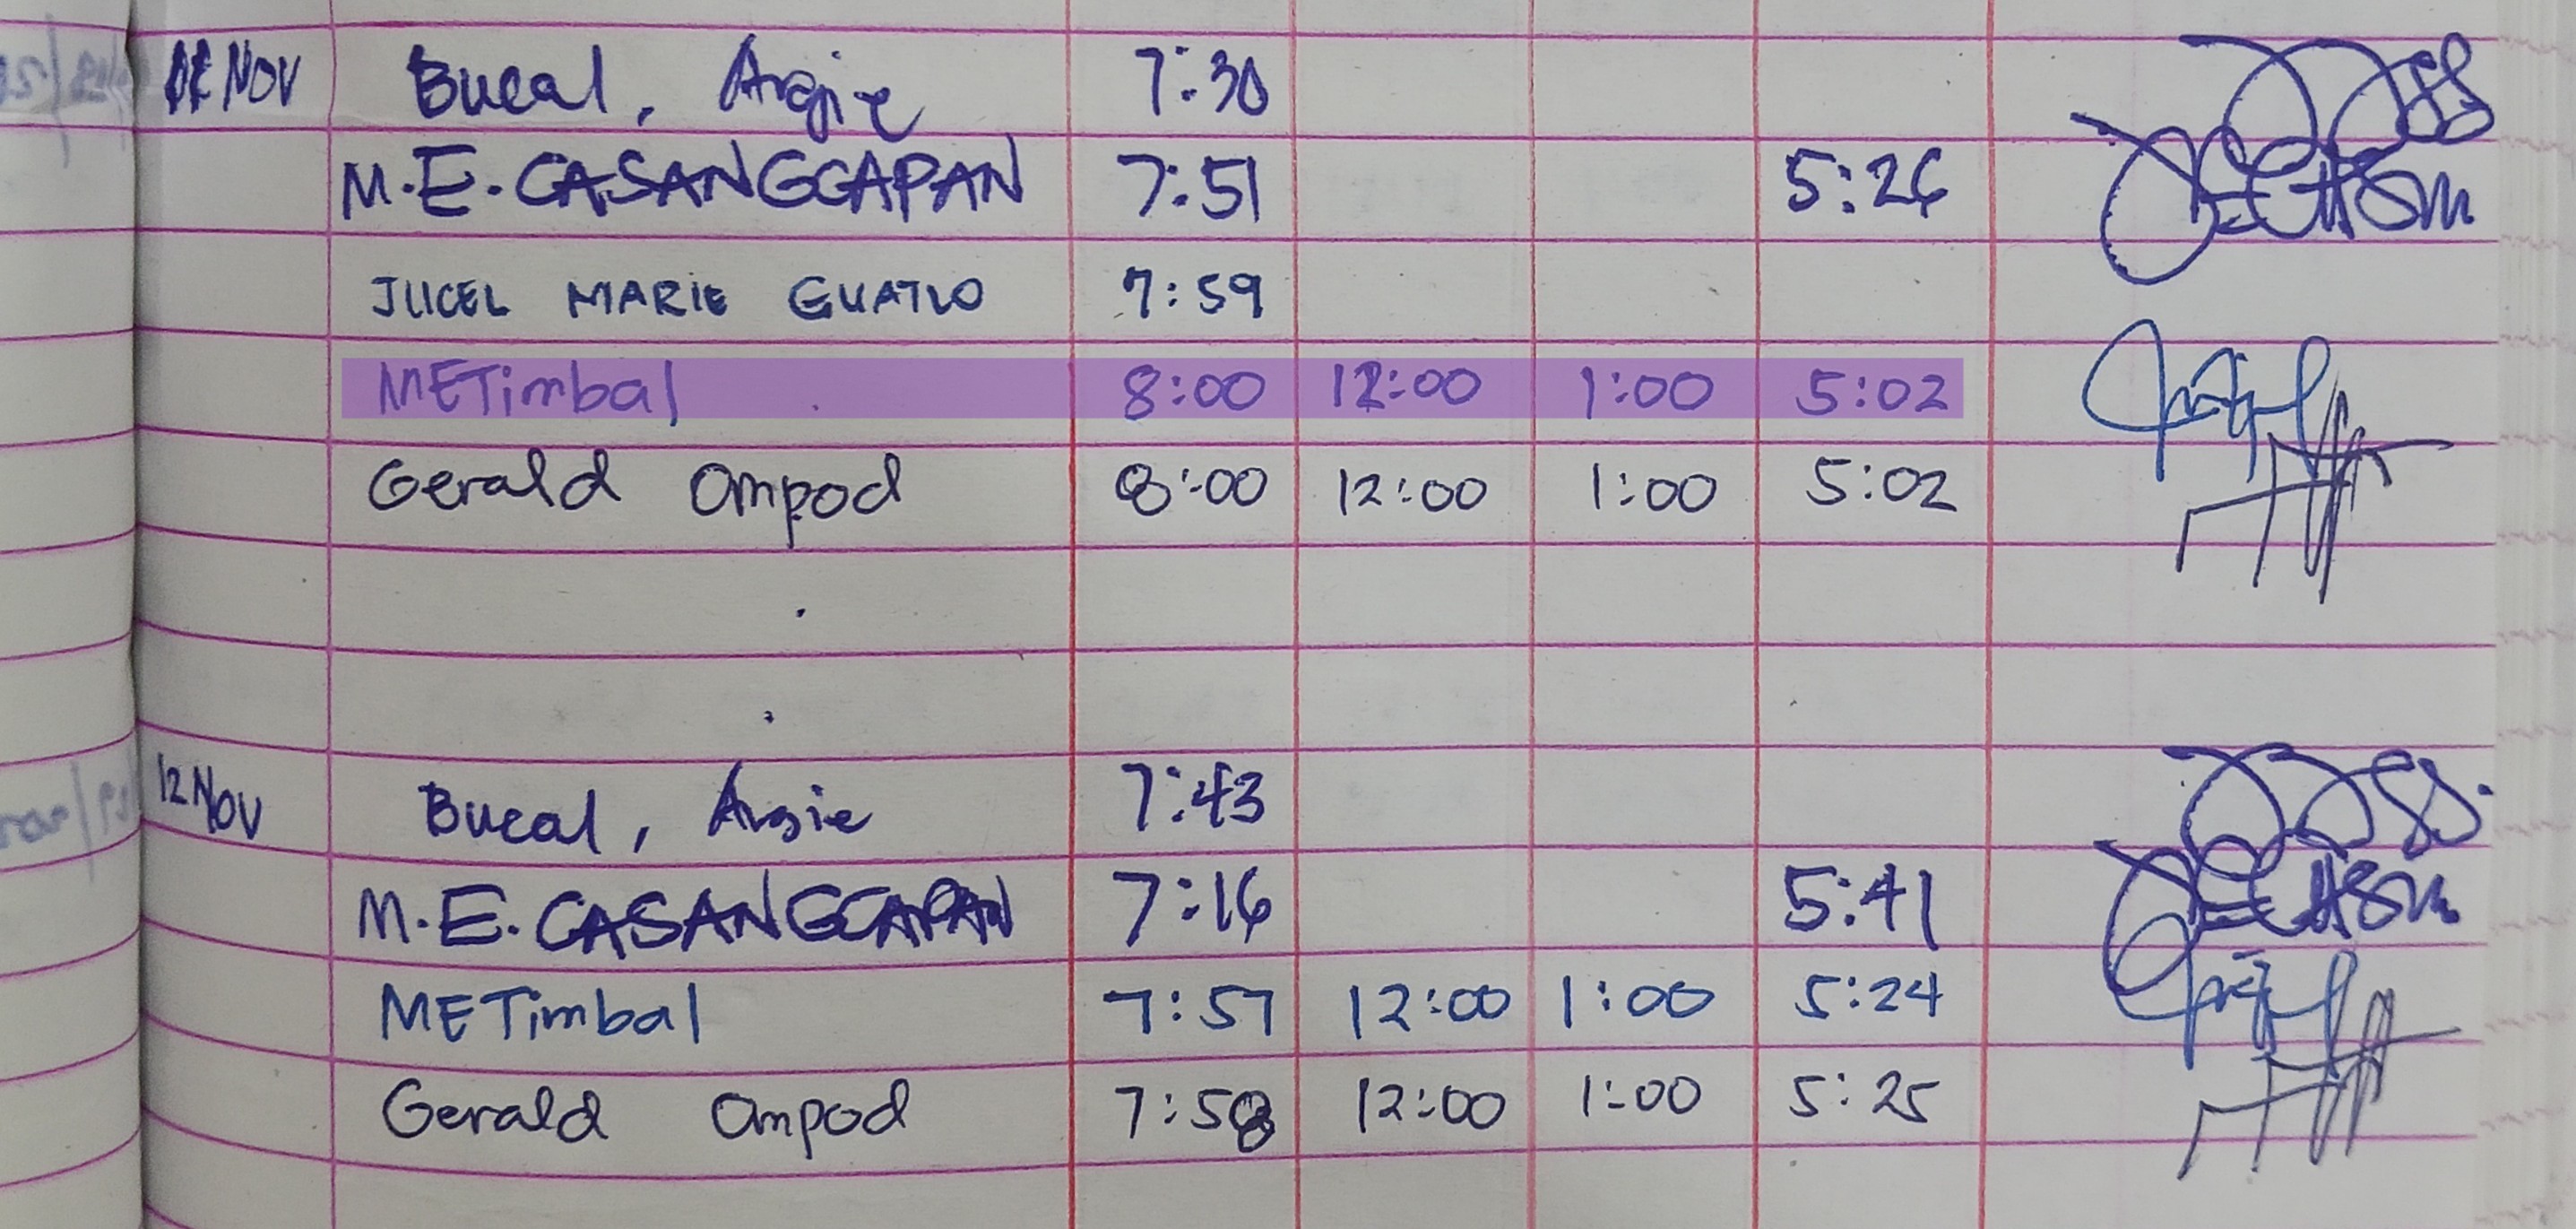 NOV Bucal, Argie 7:30
M.E. CASANGCAPAN 7:51 5:26
JUCEL MARIE GUATLO 7:59
METimbal 8:00 12:00 1:00 5:02
Gerald Ompod 8:00 12:00 1:00 5:02
12 NOV Bucal, Argie 7:43
M.E. CASANGCAPAN 7:16 5:41
METimbal 7:57 12:00 1:00 5:24
Gerald Ompod 7:58 12:00 1:00 5:25